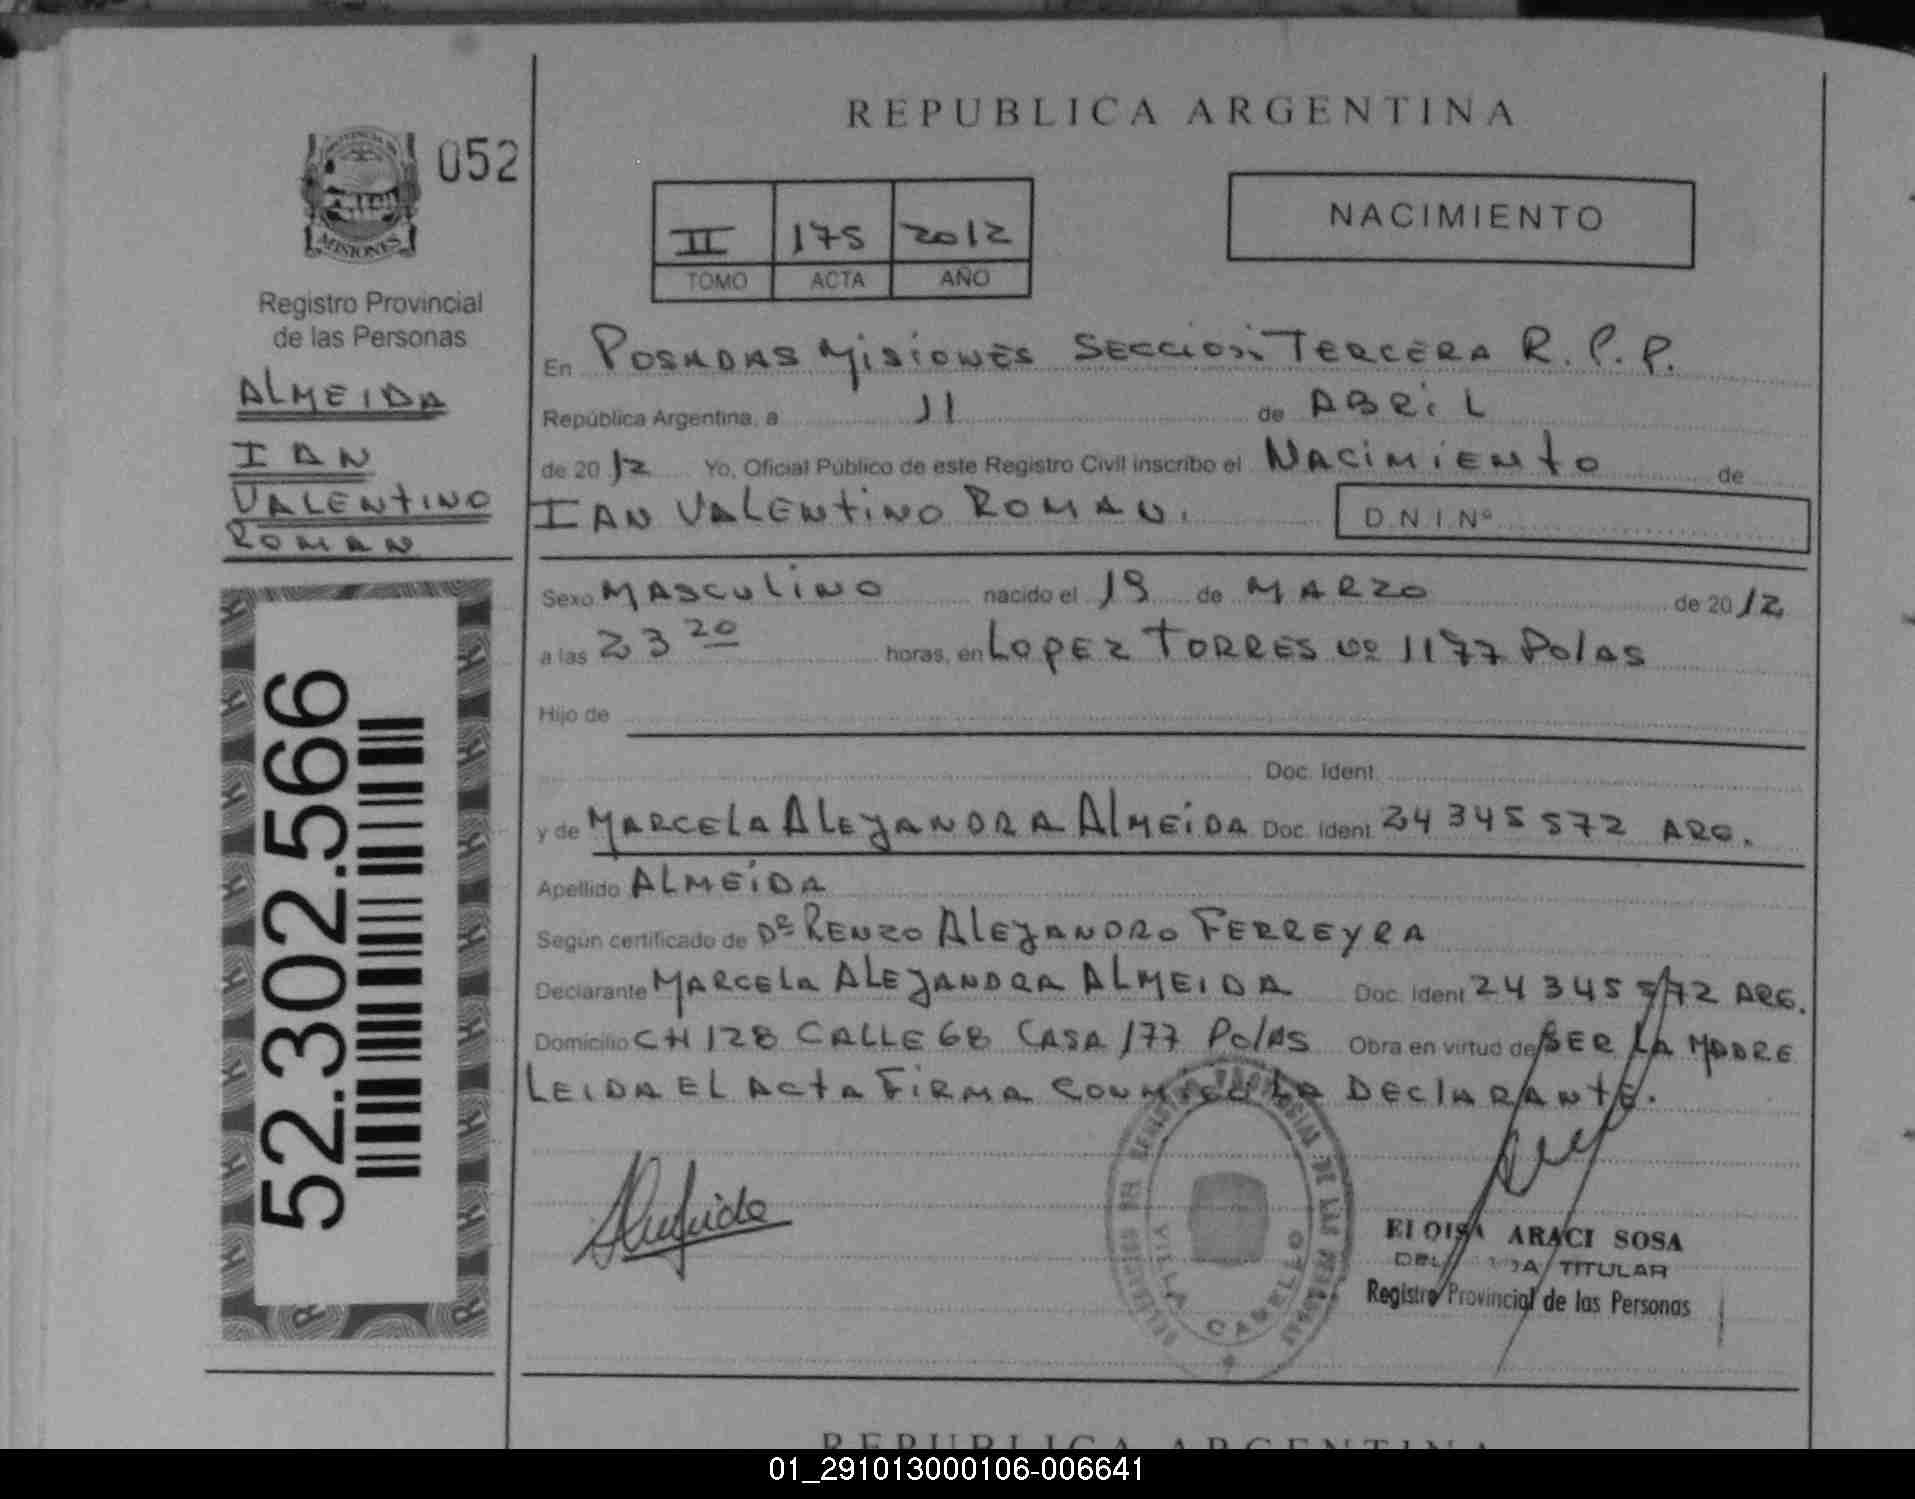 REPUBLICA ARGENTINA
PROVINCIA DE
MISIONES
052
II 175 2012
TOMO ACTA AÑO
NACIMIENTO
Registro Provincial
de las Personas
ALMEIDA
IAN
VALENTINO
ROMAN
52.302.566
En POSADAS MISIONES SECCION TERCERA R.P.P.
República Argentina, a 11 de ABRIL
de 2012 Yo, Oficial Público de este Registro Civil inscribo el NACIMIENTO de
IAN VALENTINO ROMAN. D N I Nº
Sexo MASCULINO nacido el 19 de MARZO de 2012
a las 23 20 horas, en LOPEZ TORRES Nº 1177 Po/AS
Hijo de
Doc. Ident.
y de MARCELA ALEJANDRA ALMEIDA Doc. Ident. 24345572 ARG.
Apellido ALMEIDA
Según certificado de Dr RENZO ALEJANDRO FERREYRA
Declarante MARCELA ALEJANDRA ALMEIDA Doc. Ident 24345572 ARG.
Domicilio CH 128 CALLE 68 CASA 177 Po/AS Obra en virtud de SER LA MADRE
LEIDA EL ACTA FIRMA CONMIGO LA DECLARANTE.
Almeida
REGISTRO PROVINCIAL DE LAS PERSONAS
VILLA CABELLO
ELOISA ARACI SOSA
TITULAR
Registro Provincial de las Personas
REPUBLICA ARGENTINA
01_291013000106-006641